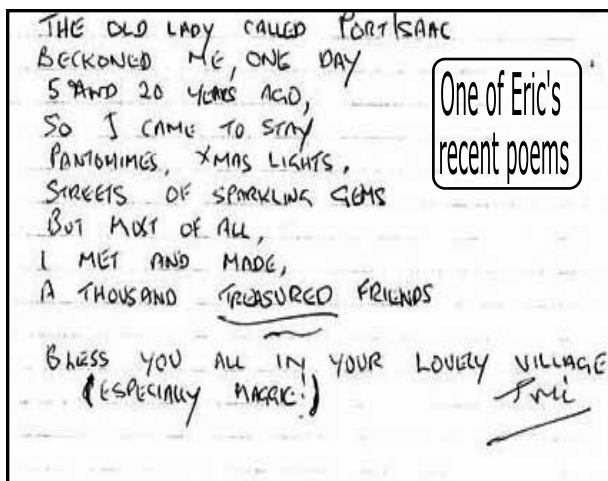 THE OLD LADY CALLED PORT ISAAC
BECKONED ME, ONE DAY
5 AND 20 YEARS AGO,
SO I CAME TO STAY
PANTOMIMES, XMAS LIGHTS,
STREETS OF SPARKLING GEMS
BUT MOST OF ALL,
I MET AND MADE,
A THOUSAND TREASURED FRIENDS
BLESS YOU ALL IN YOUR LOVELY VILLAGE
(ESPECIALLY MAGGIE!)
Eric
One of Eric's
recent poems